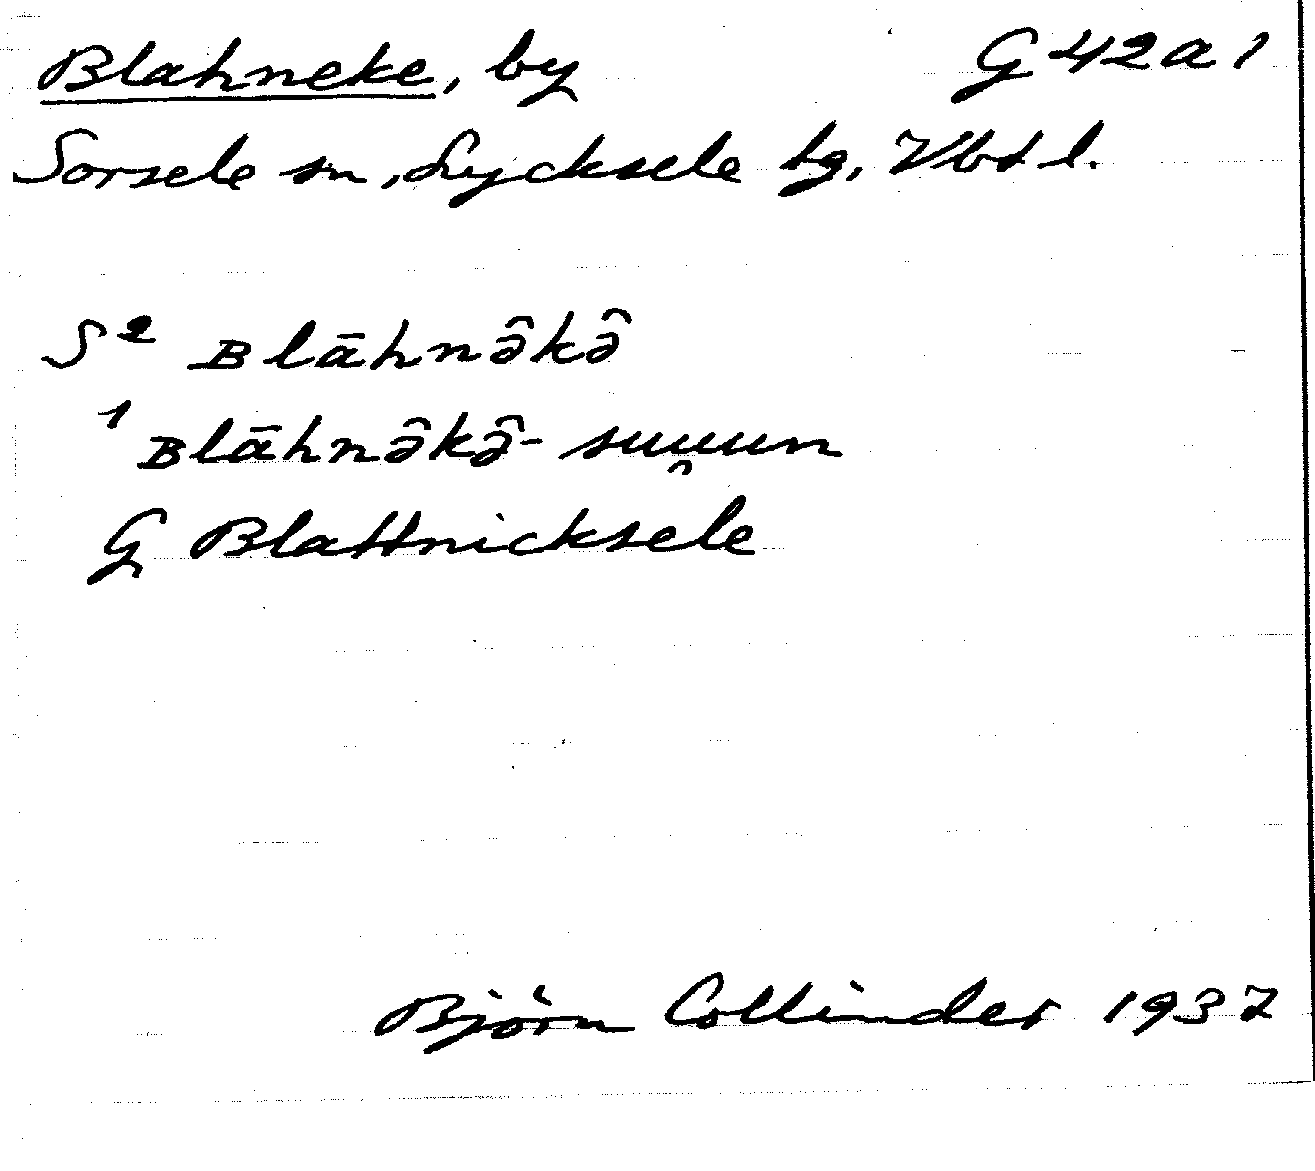 Blahneke, by G 42 a 1
Sorsele sn, Lycksele lg, Vbt l.
S² ʙlāhnə̂kə̂
¹ ʙlāhnə̂kə̂- suu̯un
G Blattnicksele
Björn Collinder 1937